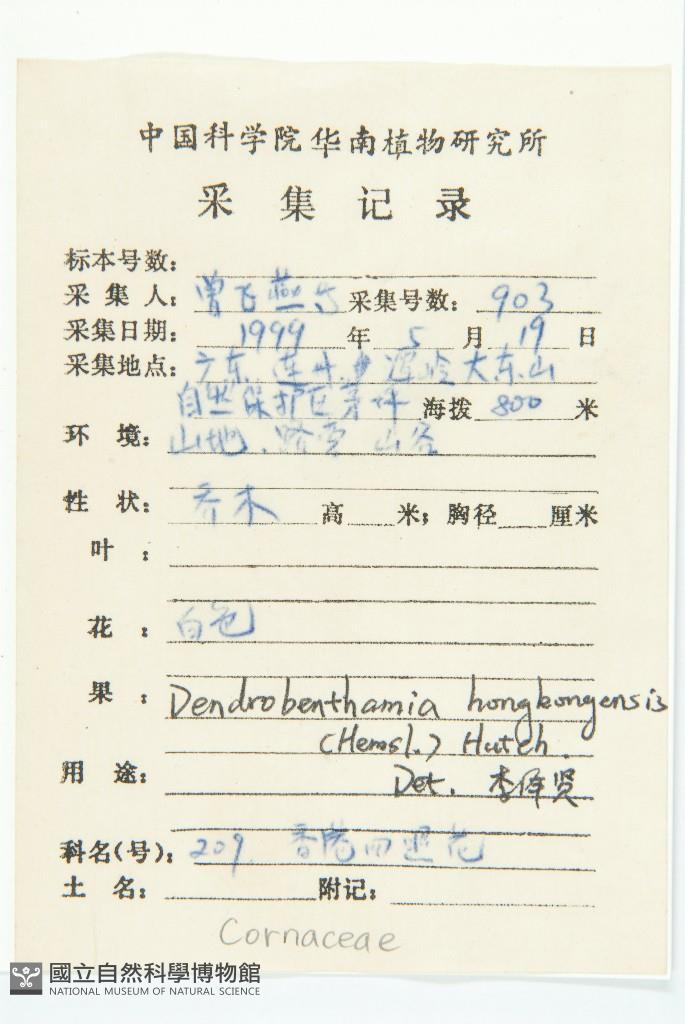 中国科学院华南植物研究所
采集记录
标本号数：
采集人：曾飞燕 采集号数：903
采集日期：1999年5月19日
采集地点：广东 大东山
自然保护区茅坪 海拨800米
环境：山地、路旁 山谷
性状：乔木 高 米；胸径 厘米
叶：
花：白色
果：Dendrobenthamia hongkongensis
(Hemsl.) Hutch.
用途： Det. 李泽贤
科名(号)：209. 香港四照花
土名： 附记：
Cornaceae
國立自然科學博物館
NATIONAL MUSEUM OF NATURAL SCIENCE